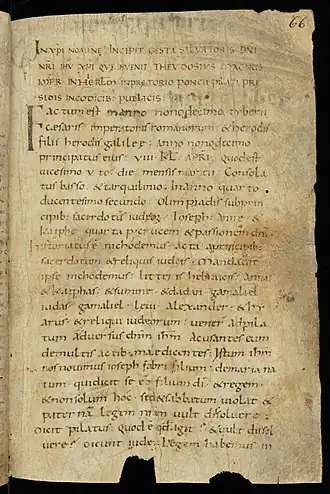 66
IN XPI NOMINE INCIPIT GESTA SALVATORIS DNI
NRI IHU XPI QUE INVENIT THEVDOSIUS MAGNUS
IMPR IN HIERLM IN PRETORIO PONCII PILATI PRE
SIDIS IN CODICIB: PUBLICIS
Factum est in anno nonodecimo tyberii
caesaris imperitoris romanorum & herodis
filii herodis galileę anno nonodecimo
principatus eius VIII KL APRL quod est
vicesimo V to die mensis martii Consola
tus basso & tarquilino In anno quarto
ducentesimo secundo Olimpiadis sub prin
cipib: sacerdotu iudęor Ioseph Anne &
Kaiphe quarta p crucem & passionem dni
historiatus e nichodemus acta a principib:
sacerdotum & reliquis iudeis Mandauit
ipse nichodemus litteris hebraicis Annas
& kaiphas & summe & dadan gamaliel
iudas gamaliel leui alexander & hy
arus & reliqui iudeorum uener ad pila
tum aduersus dnm ihm Accusantes eum
de multis actib: male dicentes Istum ihm
nos nouimus ioseph fabri filium de maria na
tum qui dicit se e filium di & regem
& non solum hoc sed & sabbatum uiolat &
pater na legem nram uult dissoluere:
Dicit pilatus quod e qd agit & uult dissol
uere: dicunt iudei Legem habemus in